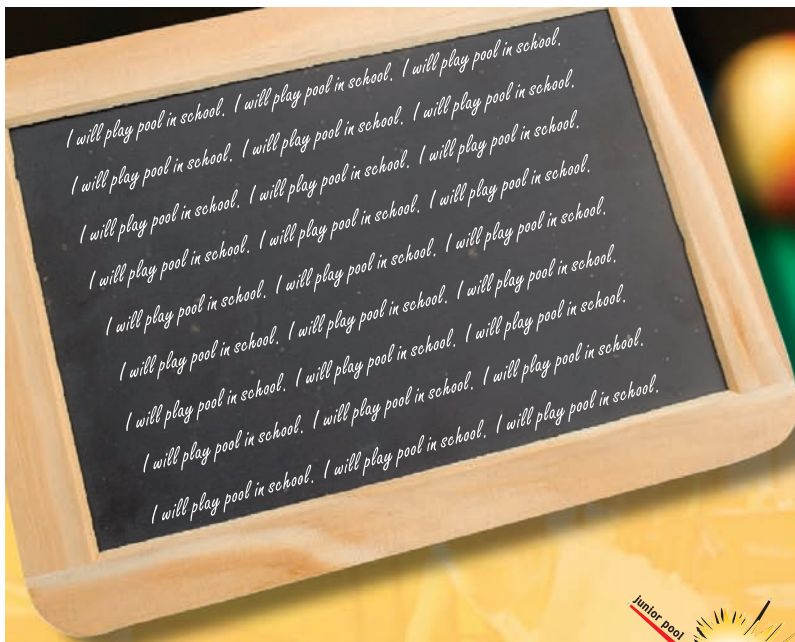 I will play pool in school. I will play pool in school. I will play pool in school.
I will play pool in school. I will play pool in school. I will play pool in school.
I will play pool in school. I will play pool in school. I will play pool in school.
I will play pool in school. I will play pool in school. I will play pool in school.
I will play pool in school. I will play pool in school. I will play pool in school.
I will play pool in school. I will play pool in school. I will play pool in school.
I will play pool in school. I will play pool in school. I will play pool in school.
I will play pool in school. I will play pool in school. I will play pool in school.
I will play pool in school. I will play pool in school. I will play pool in school.
junior pool